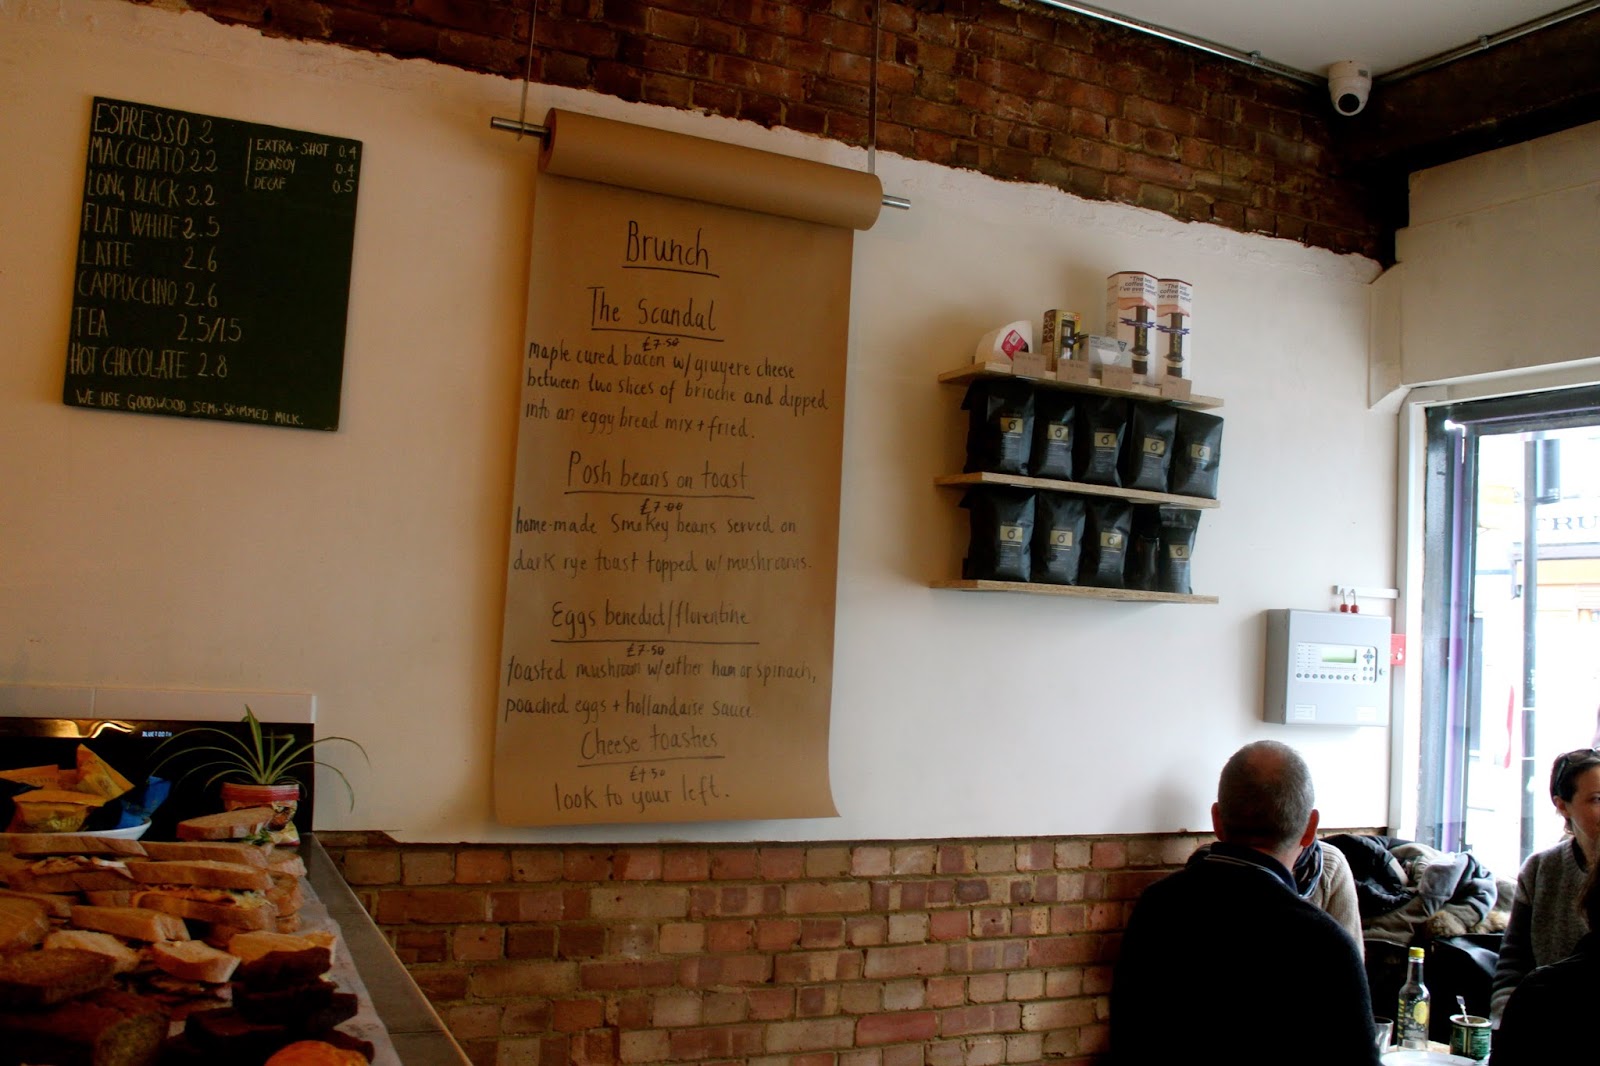 ESPRESSO 2
MACCHIATO 2.2
LONG BLACK 2.2
FLAT WHITE 2.5
LATTE 2.6
CAPPUCCINO 2.6
TEA 2.5/1.5
HOT CHOCOLATE 2.8
WE USE GOODWOOD SEMI-SKIMMED MILK.
EXTRA-SHOT 0.4
BONSOY 0.4
DECAF 0.5
Brunch
The Scandal
£7.50
Maple cured bacon w/ gruyere cheese
between two slices of brioche and dipped
into an eggy bread mix + fried.
Posh beans on toast
£7.00
home-made Smokey beans served on
dark rye toast topped w/ mushrooms.
Eggs benedict/florentine
£7.50
toasted mushroom w/either ham or spinach,
poached eggs + hollandaise sauce
Cheese toasties
£4.50
look to your left.
"The best
coffee maker
I've ever owned"
"The
coffee
I've
BLUETOOTH
TRU